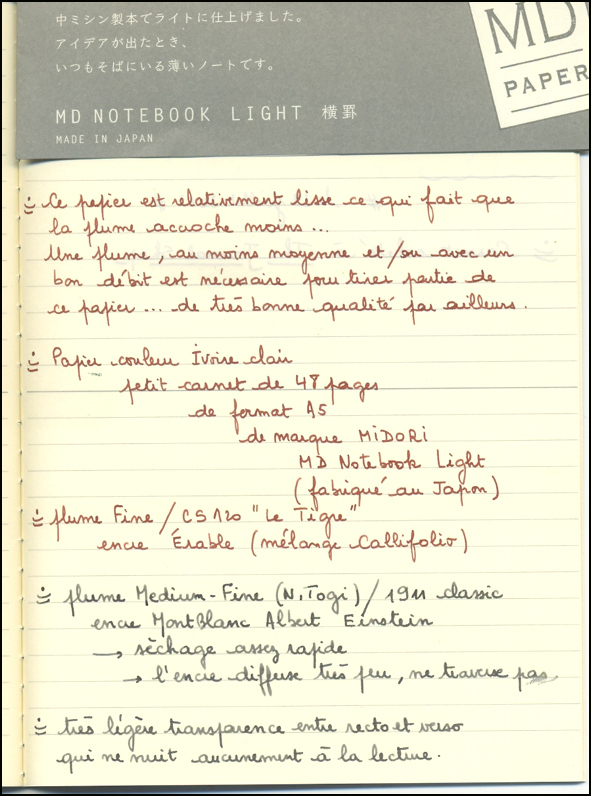 中ミシン製本でライトに仕上げました。
アイデアが出たとき、
いつもそばにいる薄いノートです。
MD NOTEBOOK LIGHT 横罫
MADE IN JAPAN
MD
PAPER
Ce papier est relativement lisse ce qui fait que
la plume accroche moins...
Une plume, au moins moyenne et/ou avec un
bon débit est nécessaire pour tirer partie de
ce papier... de très bonne qualité par ailleurs.
Papier couleur Ivoire clair
petit carnet de 48 pages
de format A5
de marque MiDORi
MD Notebook Light
(fabriqué au Japon)
plume Fine / CS 120 "Le Tigre"
encre Érable (mélange Callifolio)
plume Medium-Fine (N.Togi) / 1911 classic
encre MontBlanc Albert Einstein
→ sèchage assez rapide
→ l'encre diffuse très peu, ne traverse pas
très légère transparence entre recto et verso
qui ne nuit aucunement à la lecture.